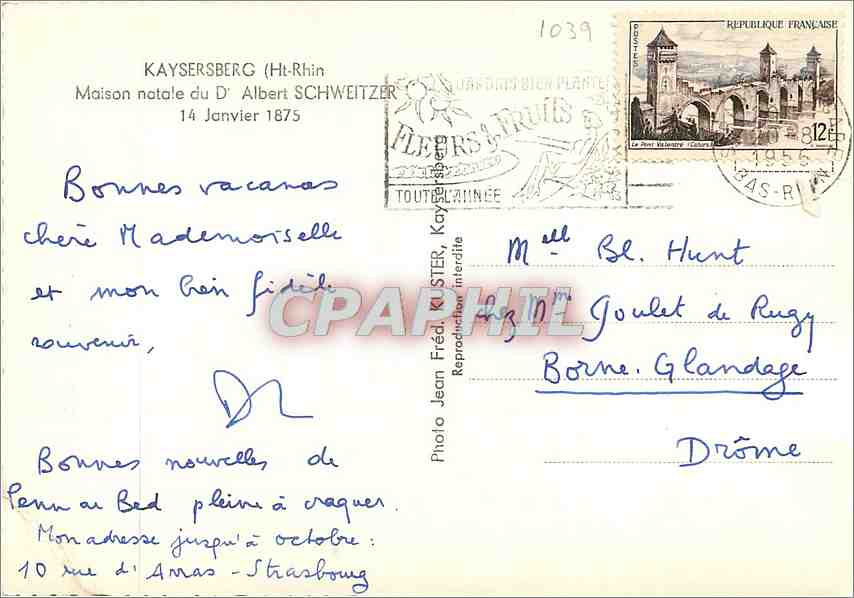 1039
KAYSERSBERG (Ht-Rhin
Maison natale du Dr Albert SCHWEITZER
14 Janvier 1875
JARDINS BIEN PLANTÉS
FLEURS & FRUITS
TOUTE L'ANNÉE
POSTES
REPUBLIQUE FRANÇAISE
Le Pont Valentré (Cahors)
12F
-8
1956
BAS-RHIN
Bonnes vacances
chère Mademoiselle
et mon bien fidèle
souvenir,
Bonnes nouvelles de
Penn ar Bed pleine à craquer.
Mon adresse jusqu'à octobre :
10 rue d'Arras - Strasbourg
Photo Jean Fréd. KUSTER, Kaysersberg
Reproduction interdite
CPAPHIL
Melle Bl. Hunt
chez Mme Goulet de Rugy
Borne. Glandage
Drôme